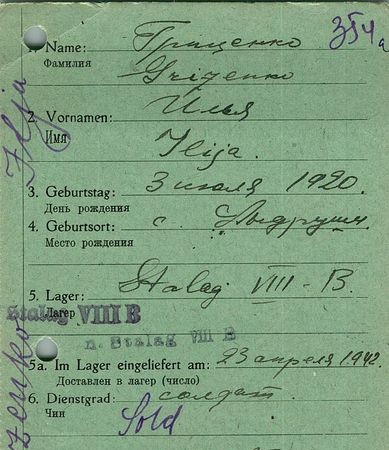 1. Name: Гриценко
354a
Фамилия
Grizenko
2. Vornamen: Илья
Имя
Ilija.
3. Geburtstag: 3 июля 1920.
День рождения
4. Geburtsort: с.
Место рождения
Stalag VIII-B
5. Lager:
Лагер
Stalag VIII B
n. Stalag VIII B
5a. Im Lager eingeliefert am: 23 апреля 1942.
Доставлен в лагер (число)
6. Dienstgrad: солдат.
Чин
Sold
Ilja
zenko